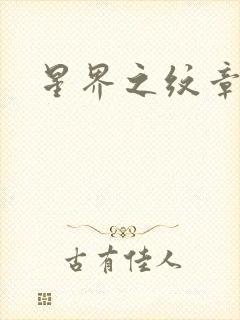 星界之纹章
古有佳人